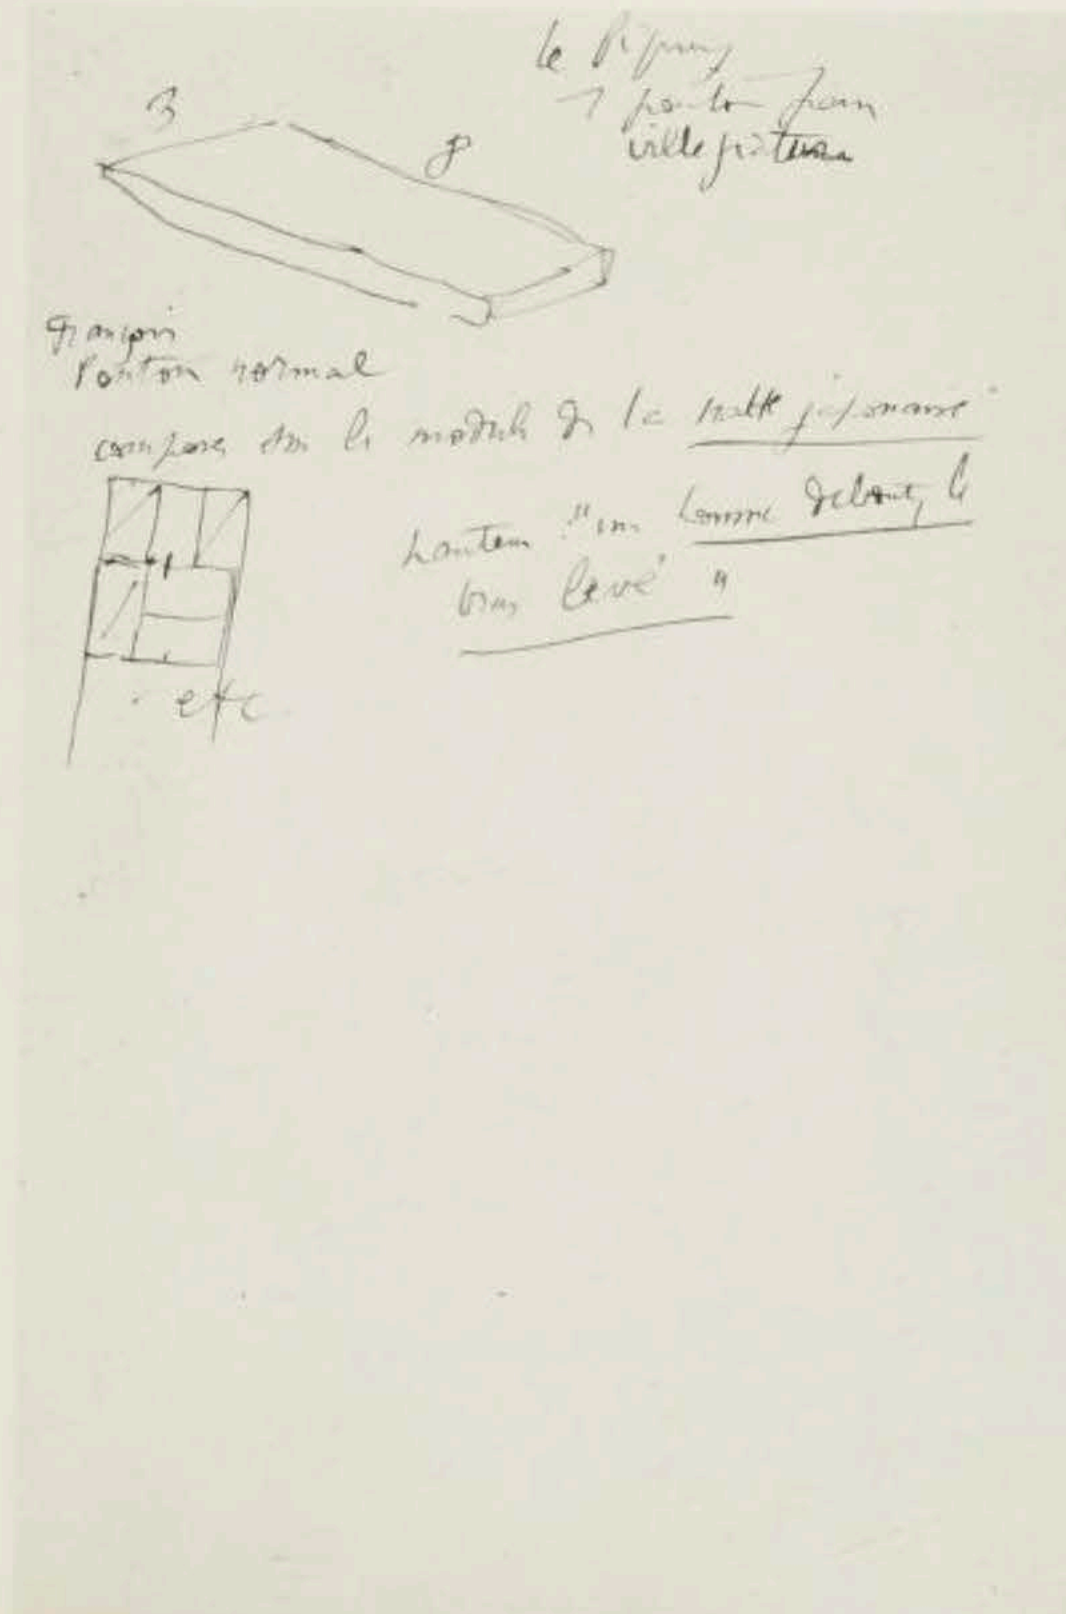 le
1 ponton pour
villégiature
3
8
français
Ponton normal
composé sur le module de la natte japonaise
hauteur "un homme debout, le
bras levé"
etc